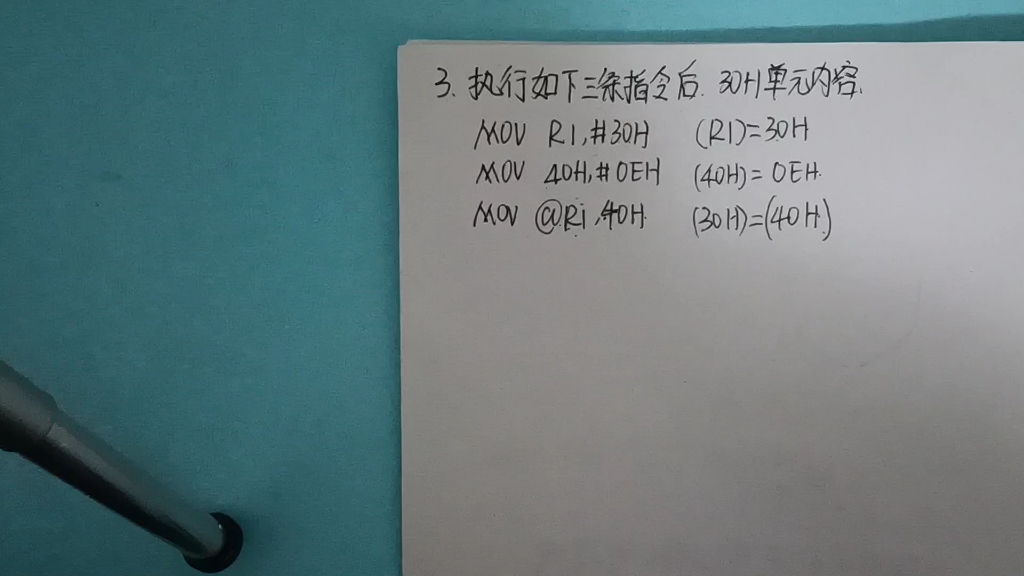 3. 执行如下三条指令后. 30H单元内容.
MOV R1,#30H (R1)=30H
MOV 40H,#0EH (40H)=0EH.
MOV @Ri,40H. (30H)=(40H.)